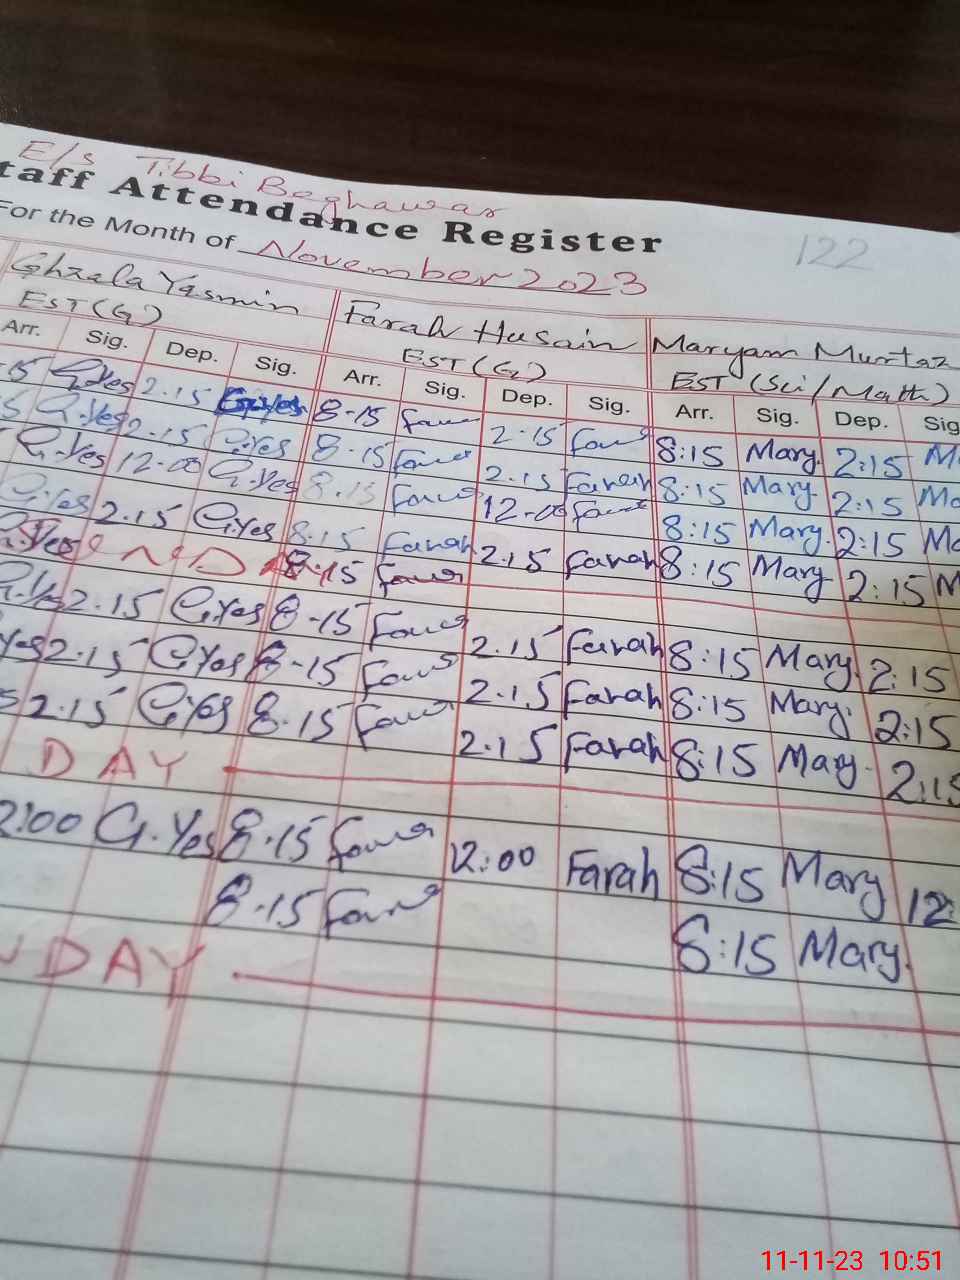 E/s Tibbi Beghawar
taff Attendance Register
For the Month of November 2023
122
Ghzala Yasmin Farah Husain Maryam Mumtaz
EST (G) EST (G) EST (Sci/Math)
Arr. Sig. Dep. Sig. Arr. Sig. Dep. Sig. Arr. Sig. Dep. Sig
15 G.Yes 2.15 G.Yes 8-15 2-15 8:15 Mary. 2:15 M
G.Yes 2.15 G.Yes 8-15 2.15 Farah 8:15 Mary. 2:15 Ma
G.Yes 12-00 G.Yes 8.15 12-00 8:15 Mary. 2:15 Ma
G.Yes 2.15 G.Yes 8.15 Farah 2.15 Farah 8:15 Mary 2:15 M
G.Yes N D 8-15
G.Yes 2.15 G.Yes 8-15 2.15 Farah 8:15 Mary. 2:15
Yes 2.15 G.Yes 8-15 2.15 Farah 8:15 Mary. 2:15
s 2.15 G.Yes 8.15 2.15 Farah 8:15 Mary. 2:15
DAY
2:00 G.Yes 8.15 12:00 Farah 8:15 Mary 12
8.15 8:15 Mary.
DAY
11-11-23 10:51